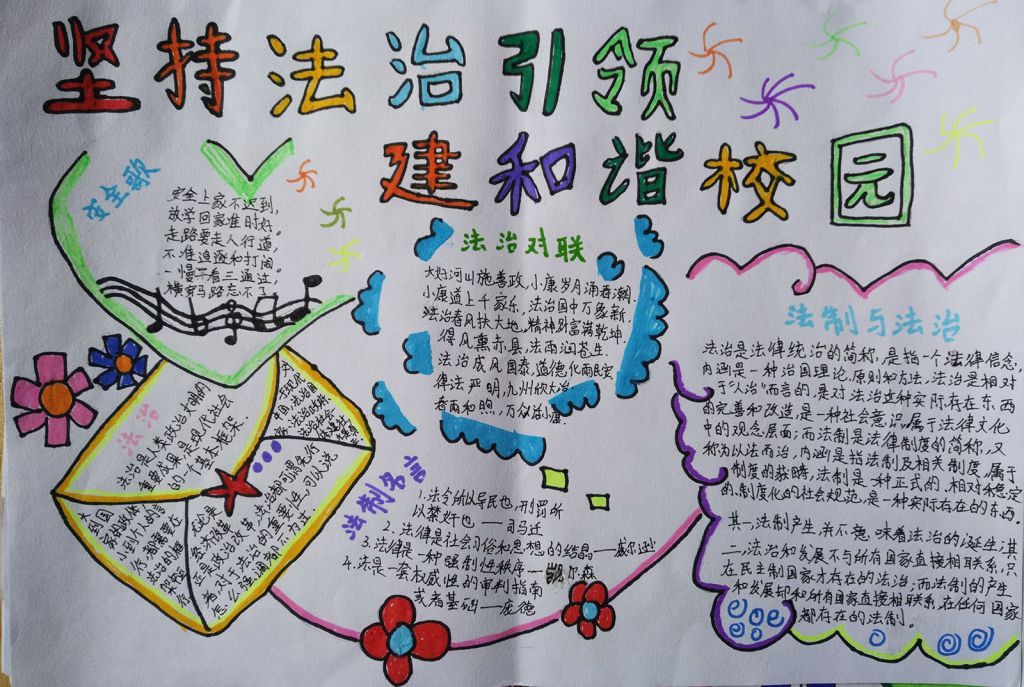 坚持法治引领
建和谐校园
安全歌
安全上家不迟到,
放学回家准时好。
走路要走人行道,
不准追逐和打闹。
一慢二看三通过,
横穿马路忘不了
法治对联
大妇河山施善政,小康岁月涌春潮.
小康道上千家乐,法治国中万象新.
法治春风扶大地,精神财富满乾坤.
得风熏赤县,法雨润苍生.
法治成风国泰,道德化雨民安
律法严明,九州欣大治
春雨和煦,万
法制与法治
法治是法律统治的简称,是指一个法律信念,
内涵是一种治国理论、原则和方法,法治是相对
于"人治"而言的,是对法治这种实际存在东西
的完善和改造,是一种社会意识,属于法律文化
中的观念层面;而法制是法律制度的简称,又
称为以法而治,内涵是指法制及相关制度,属于
制度的范畴,法制是一种正式的、相对稳定
的、制度化的社会规范,是一种实际存在的东西.
其一,法制产生并不意味着法治的诞生;其
二,法治和发展不与所有国家直接相联系,只
在民主制国家才存在的法治;而法制的产生
和发展却和所有国家直接相联系,在任何国家
都存在的法制。
法治
法治是人类政治文明的
重要成果,是现代社会
的一个基本框架.
大到国
家的政体,
小到个人的言
行,都需要在
法治的框
架中
对于现代
中国,法治国
无论是
经济改革
还是政治改革,法治都可谓先行
者,对于法治的重要性,可以说
怎么强调都不为过
法制名言
1.法令所以导民也,刑罚所
以禁奸也 ——司马迁
2.法律是社会习俗和思想的结晶——威尔逊
3.法律是一种强制性秩序——凯尔森
4.法是一套权威性的审判指南
或者基础——庞德